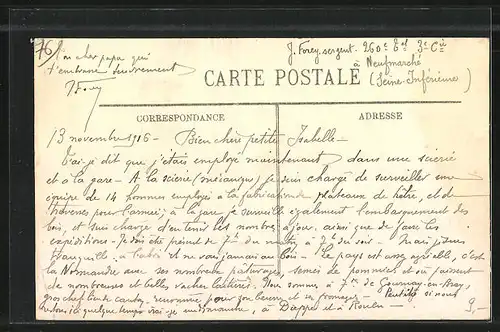 76
Ton cher papa qui
t'embrasse tendrement
J Forey
J. Forey, sergent. 260e Et 3e Cie
à Neufmarché
(Seine-Inférieure)
CARTE POSTALE
CORRESPONDANCE
ADRESSE
13 novembre 1916 - Bien chère petite Isabelle -
T'ai-je dit que j'étais employé maintenant dans une scierie
et à la gare - A la scierie (mécanique) je suis chargé de surveiller une
équipe de 14 hommes employés à la fabrication de plateaux de hêtre, et de
traverses pour l'armée; à la gare je surveille également l'embarquement des
bois, et suis chargé d'en tenir les nombres à jour, ainsi que de faire les
expéditions - Je dois être présent de 7h du matin à du soir - Mais j'suis
tranquille, à l'abri et ne vais jamais au bois - Le pays est assez agréable, c'est
la Normandie avec ses nombreux pâturages, semés de pommiers et où paissent
de nombreuses et belles vaches laitières. Nous sommes à 7km de Gournay-en-Bray,
gros chef-lieu de canton, renommé pour son beurre et ses fromages - Peut-être si nous
restons ici quelque temps irai-je un dimanche, à Dieppe et à Rouen -